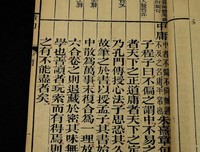 中庸中者不偏不倚無過不及之名庸平常也朱熹章
子程子曰不偏之謂中不易
者天下之正道庸者天下之定
乃孔門傳授心法子思恐其久
故筆之於書以授孟子其書始
中散為萬事末復合為一理放
六合卷之則退藏於密其味無
學也善讀者玩索而有得焉
之有不能盡者矣